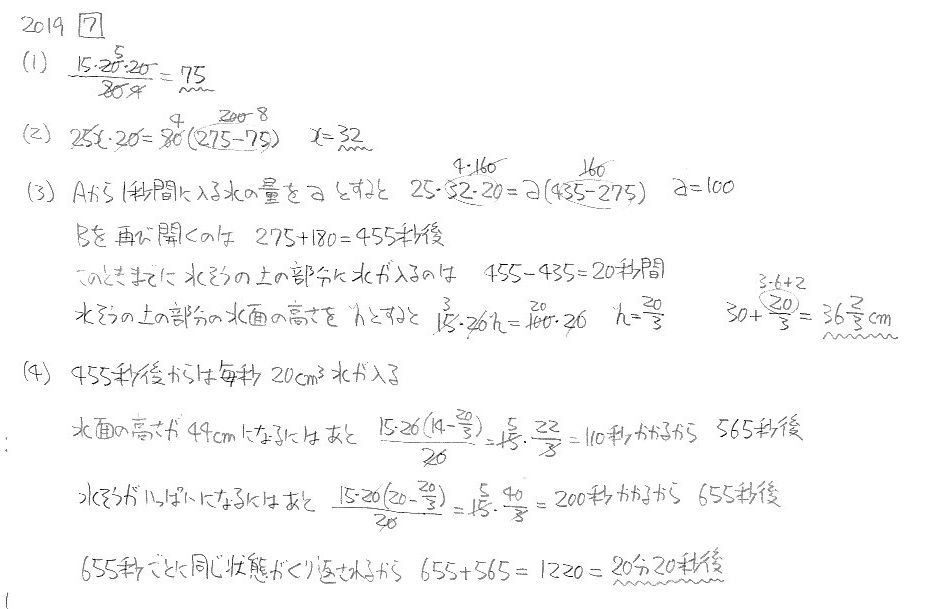 2019 7
(1) 15·20·20/80 = 75
5 4
(2) 25x·20=80(275-75) x=32
4 200 8
(3) Aから1秒間に入る水の量をaとすると 25·32·20=a(435-275) a=100
4·160 160
Bを再び開くのは 275+180=455秒後
このときまでに水そうの上の部分に水が入るのは 455-435=20秒間
水そうの上の部分の水面の高さをhとすると 15·20h=100·20 h=20/3 30+20/3=36 2/3cm
3 20 3·6+2
(4) 455秒後からは毎秒20cm³水が入る
水面の高さが44cmになるにはあと 15·20(14-20/3)/20=15·22/3=110秒かかるから 565秒後
5
水そうがいっぱいになるにはあと 15·20(20-20/3)/20=15·40/3=200秒かかるから 655秒後
5
655秒ごとに同じ状態がくり返されるから 655+565=1220=20分20秒後